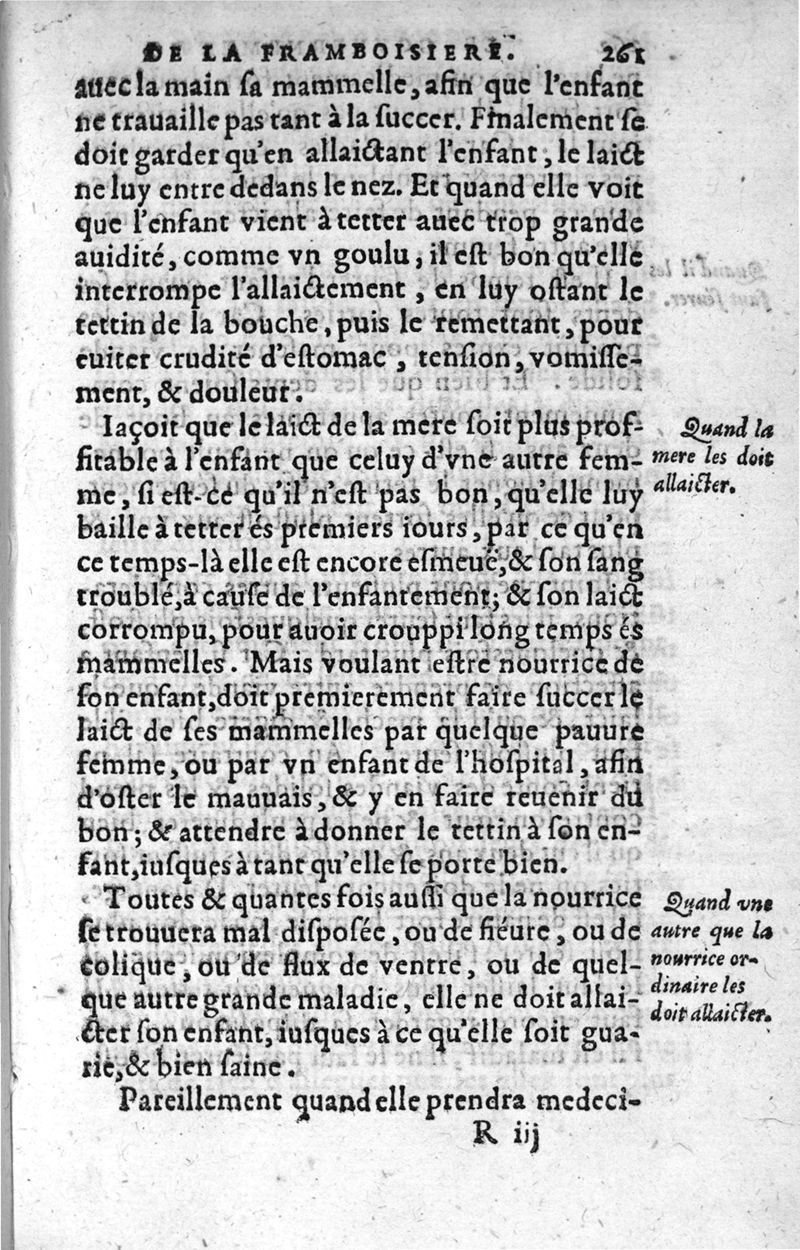 DE LA FRAMBOISIERE. 261
auec la main ſa mammelle, afin que l'enfant
ne trauaille pas tant à la ſuccer. Finalement ſe
doit garder qu'en allaictant l'enfant, le laict
ne luy entre dedans le nez. Et quand elle voit
que l'enfant vient à tetter auec trop grande
auidité, comme vn goulu, il eſt bon qu'elle
interrompe l'allaictement, en luy oſtant le
tettin de la bouche, puis le remettant, pour
euiter crudité d'eſtomac, tenſion, vomiſſe-
ment, & douleur.
Iaçoit que le laict de la mere ſoit plus prof-
fitable à l'enfant que celuy d'vne autre fem-
me, ſi eſt-ce qu'il n'eſt pas bon, qu'elle luy
baille à tetter és premiers iours, par ce qu'en
ce temps-là elle eſt encore eſmeuë, & ſon ſang
troublé, à cauſe de l'enfantement; & ſon laict
corrompu, pour auoir crouppi long temps és
mammelles. Mais voulant eſtre nourrice de
ſon enfant, doit premierement faire ſuccer le
laict de ſes mammelles par quelque pauure
femme, ou par vn enfant de l'hoſpital, afin
d'oſter le mauuais, & y en faire reuenir du
bon; & attendre à donner le tettin à ſon en-
fant, iuſques à tant qu'elle ſe porte bien.
Toutes & quantes fois auſſi que la nourrice
ſe trouuera mal diſpoſée, ou de fiéure, ou de
colique, ou de flux de ventre, ou de quel-
que autre grande maladie, elle ne doit allai-
cter ſon enfant, iuſques à ce qu'elle ſoit gua-
rie, & bien ſaine.
Pareillement quand elle prendra medeci-
R iij
Quand la
mere les doit
allaicter.
Quand vne
autre que la
nourrice or-
dinaire les
doit allaicter.